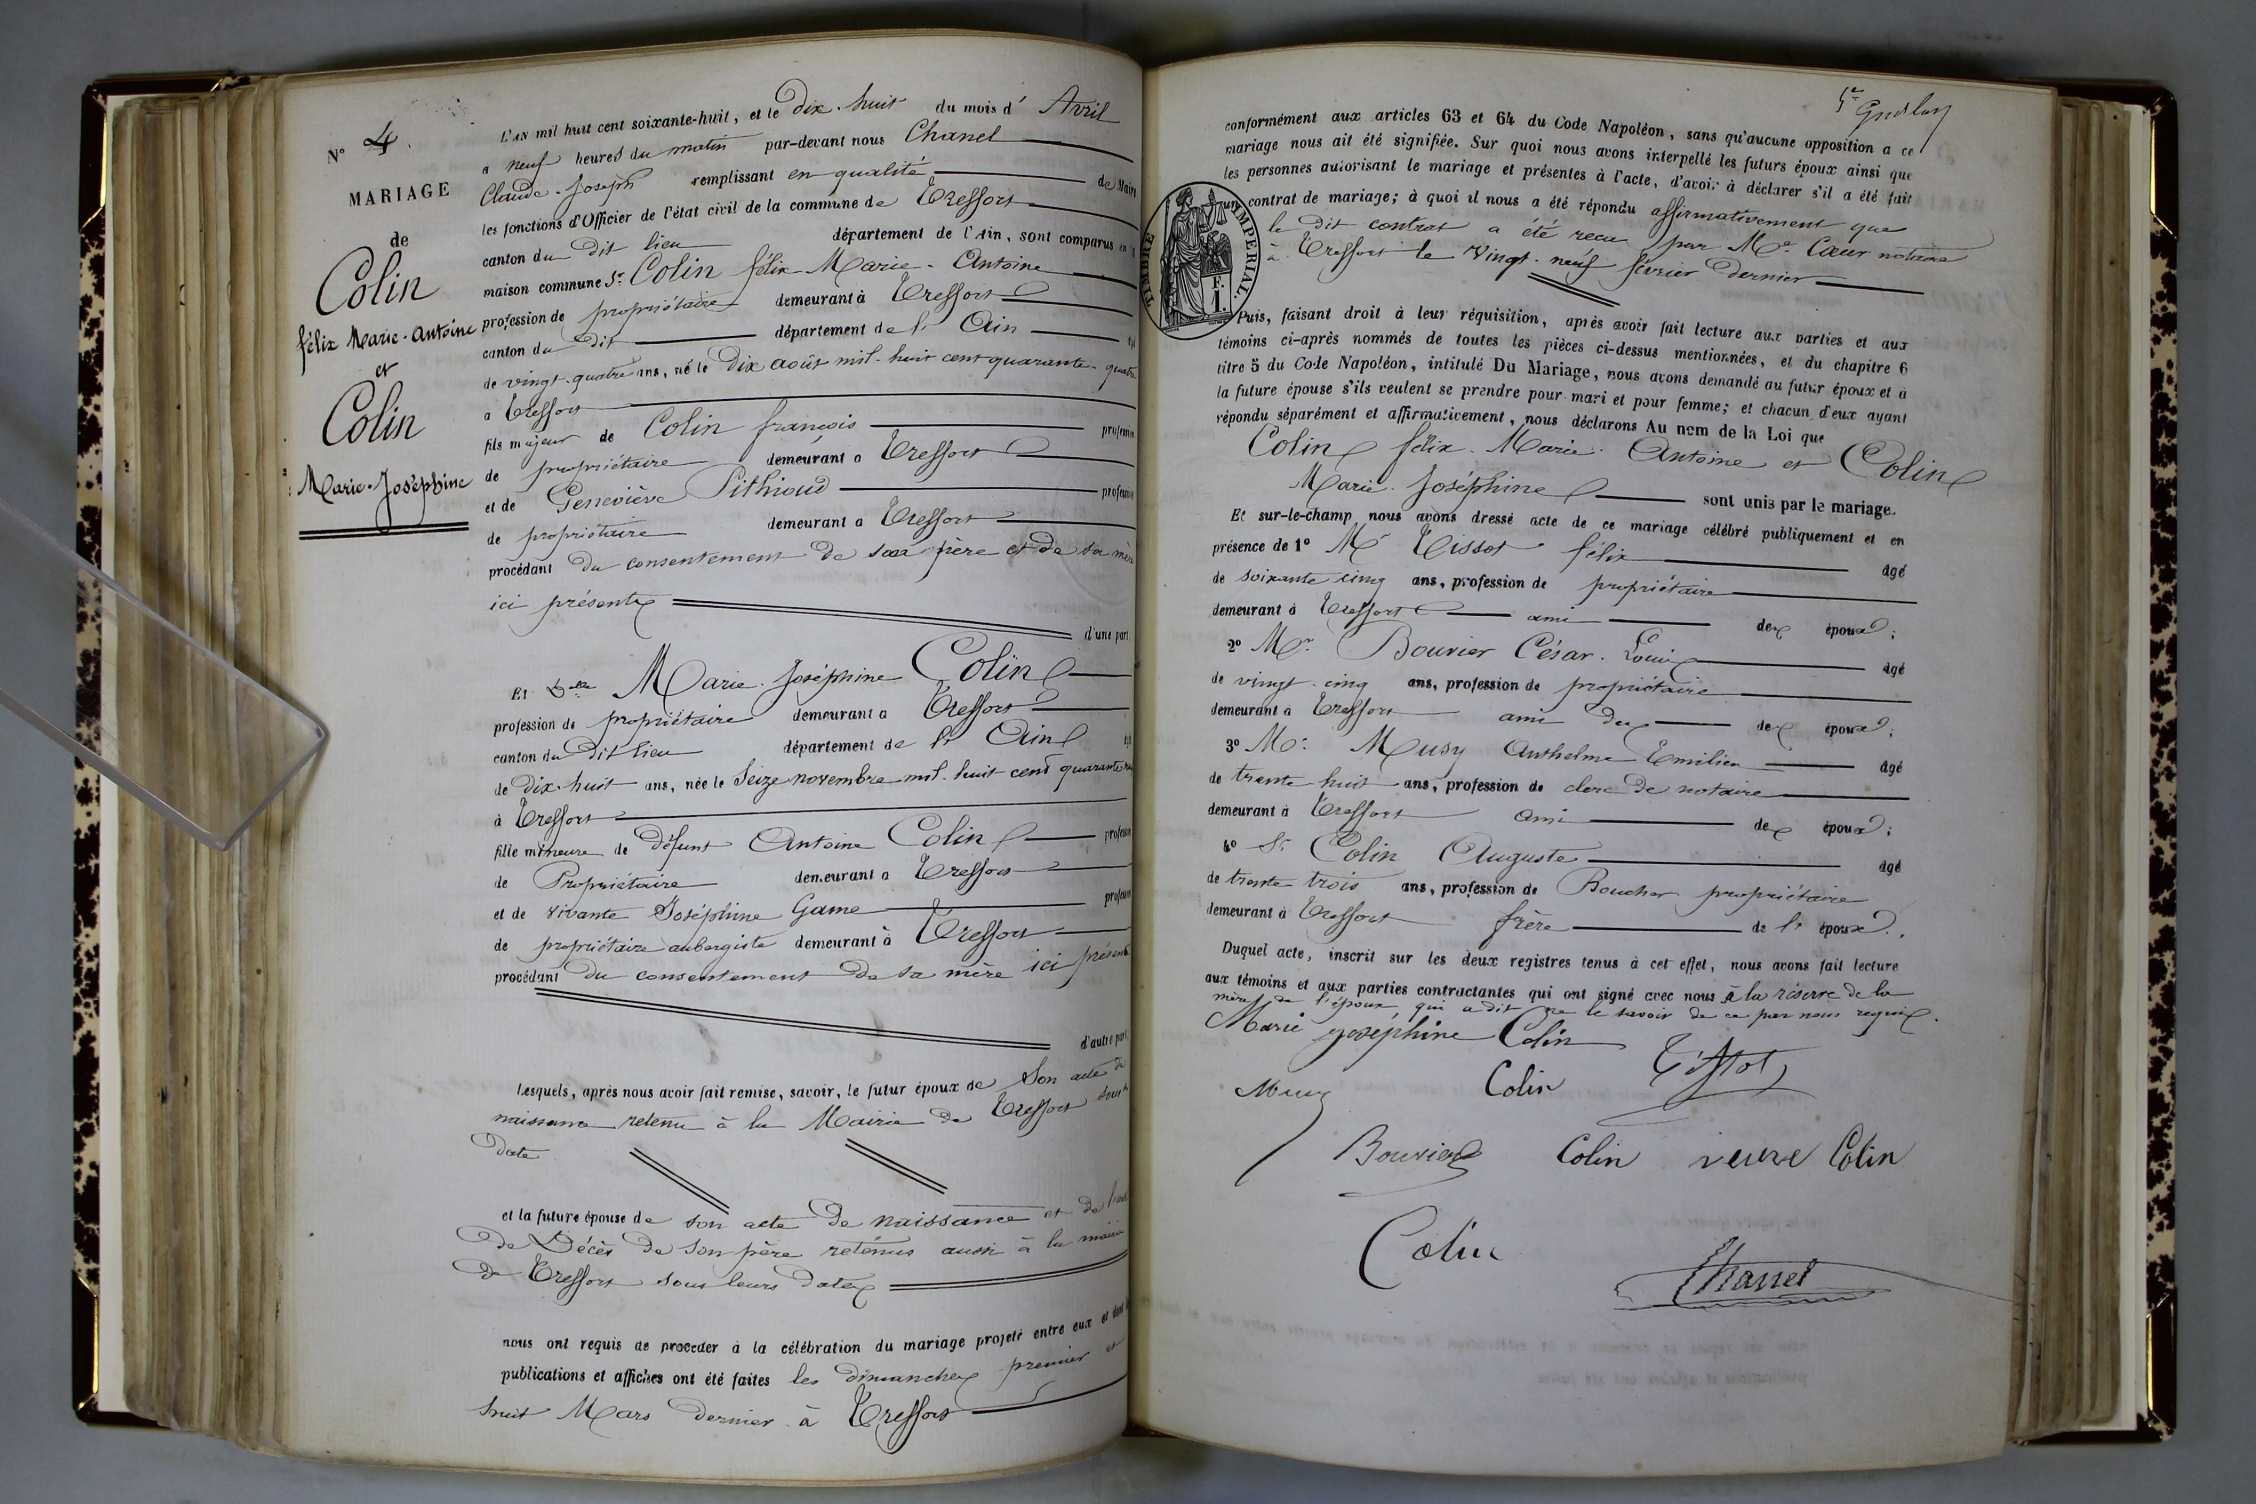 N° 4.
MARIAGE
de
Colin
félix Marie-Antoine
et
Colin
Marie-Joséphine
L'AN mil huit cent soixante-huit, et le Dix-huit du mois d' Avril
a neuf heures du matin par-devant nous Chanel
Claude-Joseph remplissant en qualité de Maire
les fonctions d'Officier de l'état civil de la commune de Treffort
canton du dit lieu département de l'Ain, sont comparus en
maison commune Sr. Colin félix-Marie-Antoine
profession de propriétaire demeurant à Treffort
canton du Dit département de l' Ain
de vingt-quatre ans, né le Dix août mil-huit cent quarante-quatre
a Treffort
fils majeur de Colin françois profession
de propriétaire demeurant a Treffort
et de Geneviève Pithioud profession
de propriétaire demeurant a Treffort
procédant du consentement de son père et de sa mère
ici présents
d'une part.
Et Delle Marie-Joséphine Colin
profession de propriétaire demeurant a Treffort
canton du Dit lieu département de l' Ain
de Dix-huit ans, née le Seize novembre mil-huit cent quarante
à Treffort
fille mineure de défunt Antoine Colin profession
de Propriétaire demeurant a Treffort
et de vivante Joséphine Game profession
de propriétaire aubergiste demeurant à Treffort
procédant du consentement de sa mère ici présente
d'autre part
Lesquels, après nous avoir fait remise, savoir, le futur époux de Son acte de
naissance retenu à la Mairie de Treffort sous
date
et la future épouse de son acte de naissance et de
de Décès de son père retenus aussi à la mairie
de Treffort sous leurs dates
nous ont requis de procéder à la célébration du mariage projeté entre eux et dont
publications et affiches ont été faites les dimanches premier et
huit Mars dernier à Treffort
conformément aux articles 63 et 64 du Code Napoléon, sans qu'aucune opposition a ce
mariage nous ait été signifiée. Sur quoi nous avons interpellé les futurs époux ainsi que
les personnes autorisant le mariage et présentes à l'acte, d'avoir à déclarer s'il a été fait
un contrat de mariage; à quoi il nous a été répondu affirmativement que
le dit contrat a été reçu par Me Cœur notaire
à Treffort le Vingt-neuf février dernier
TIMBRE IMPERIAL.
F.
1.
Puis, faisant droit à leur réquisition, après avoir fait lecture aux parties et aux
témoins ci-après nommés de toutes les pièces ci-dessus mentionnées, et du chapitre 6
titre 5 du Code Napoléon, intitulé Du Mariage, nous avons demandé au futur époux et à
la future épouse s'ils veulent se prendre pour mari et pour femme; et chacun d'eux ayant
répondu séparément et affirmativement, nous déclarons Au nom de la Loi que
Colin félix-Marie-Antoine et Colin
Marie-Joséphine sont unis par le mariage.
Et sur-le-champ nous avons dressé acte de ce mariage célébré publiquement et en
présence de 1° Mr Tissot félix âgé
de soixante cinq ans, profession de propriétaire
demeurant à Treffort ami des époux;
2° Mr. Bouvier César-Louis âgé
de vingt-cinq ans, profession de propriétaire
demeurant a Treffort ami des des époux;
3° Mr. Musy Anthelme Emilien âgé
de trente huit ans, profession de clerc de notaire
demeurant à Treffort ami des époux;
4° Sr. Colin Auguste âgé
de trente trois ans, profession de Boucher propriétaire
demeurant à Treffort frère de l' époux.
Duquel acte, inscrit sur les deux registres tenus à cet effet, nous avons fait lecture
aux témoins et aux parties contractantes qui ont signé avec nous à la réserve de la
mère de l'époux qui a dit ne le savoir de ce par nous requis.
Marie joséphine Colin
Tissot
Musy
Colin
Bouvier
Colin
veuve Colin
Colin
Chanel